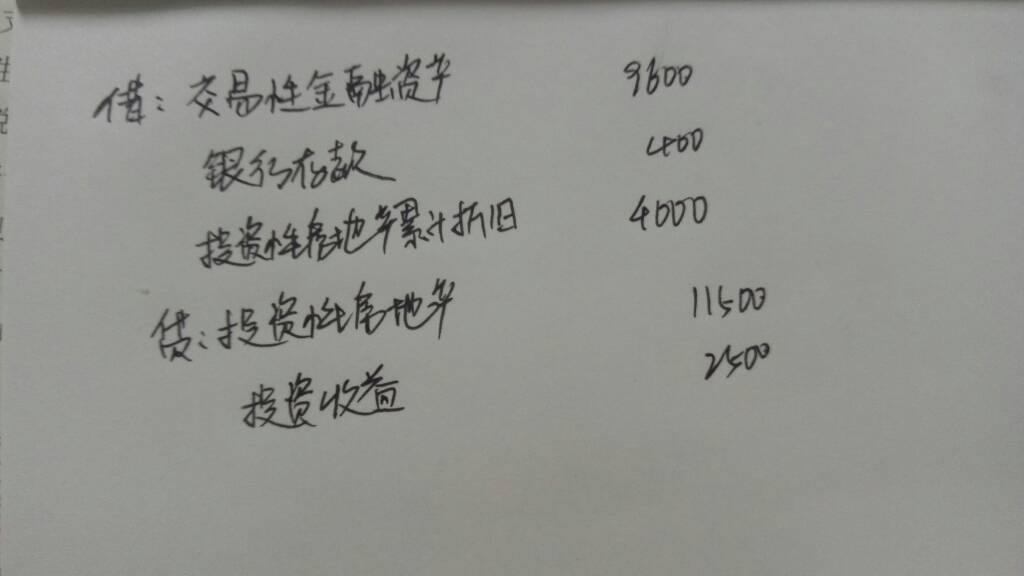 借：交易性金融资产 9600
银行存款 400
投资性房地产累计折旧 4000
贷：投资性房地产 11500
投资收益 2500